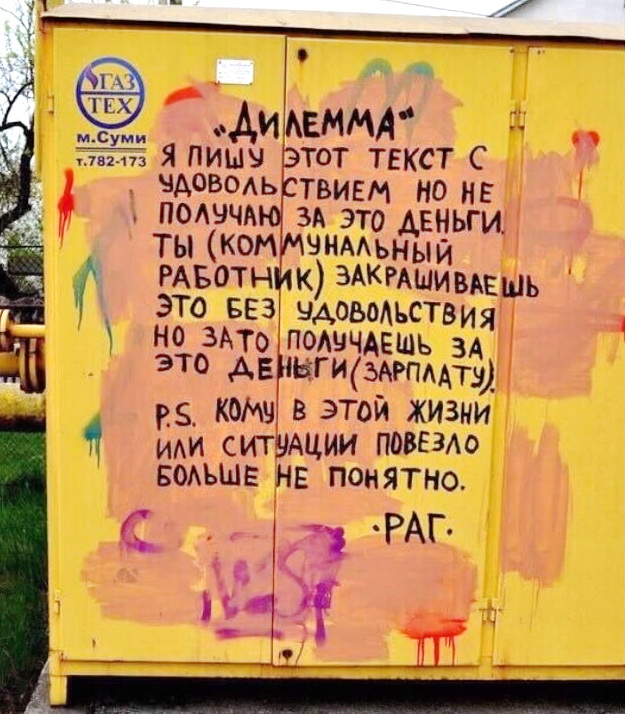 ГАЗ
ТЕХ
м.Суми
т.782-173
„ДИЛЕММА“
Я ПИШУ ЭТОТ ТЕКСТ С
УДОВОЛЬСТВИЕМ НО НЕ
ПОЛУЧАЮ ЗА ЭТО ДЕНЬГИ.
ТЫ (КОММУНАЛЬНЫЙ
РАБОТНИК) ЗАКРАШИВАЕШЬ
ЭТО БЕЗ УДОВОЛЬСТВИЯ
НО ЗАТО ПОЛУЧАЕШЬ ЗА
ЭТО ДЕНЬГИ (ЗАРПЛАТУ).
P.S. КОМУ В ЭТОЙ ЖИЗНИ
ИЛИ СИТУАЦИИ ПОВЕЗЛО
БОЛЬШЕ НЕ ПОНЯТНО.
·РАГ·